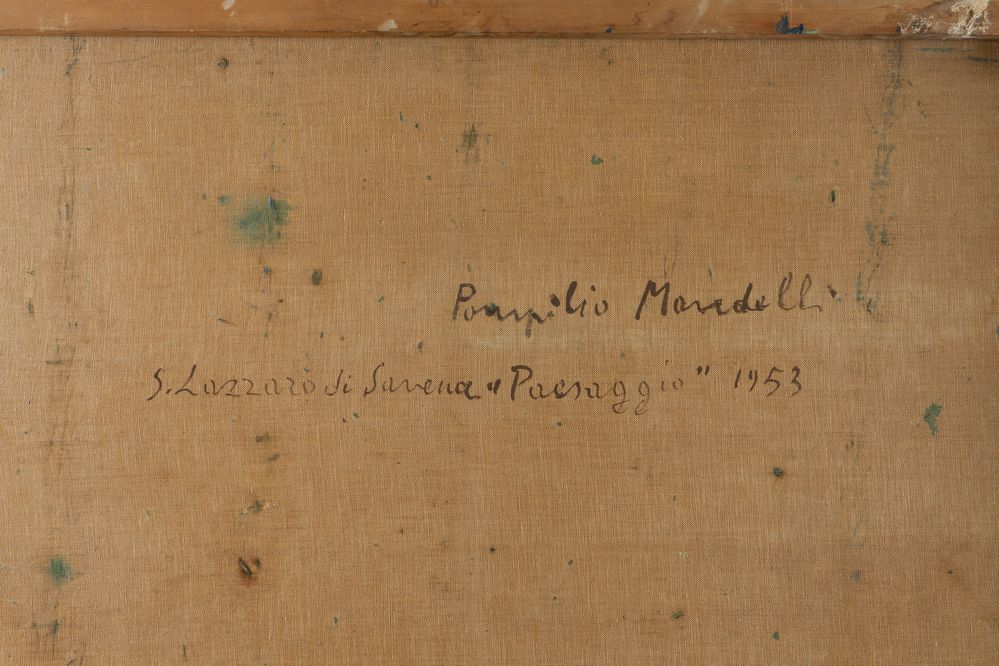 Pompilio Mandelli
S. Lazzaro di Savena "Paesaggio" 1953